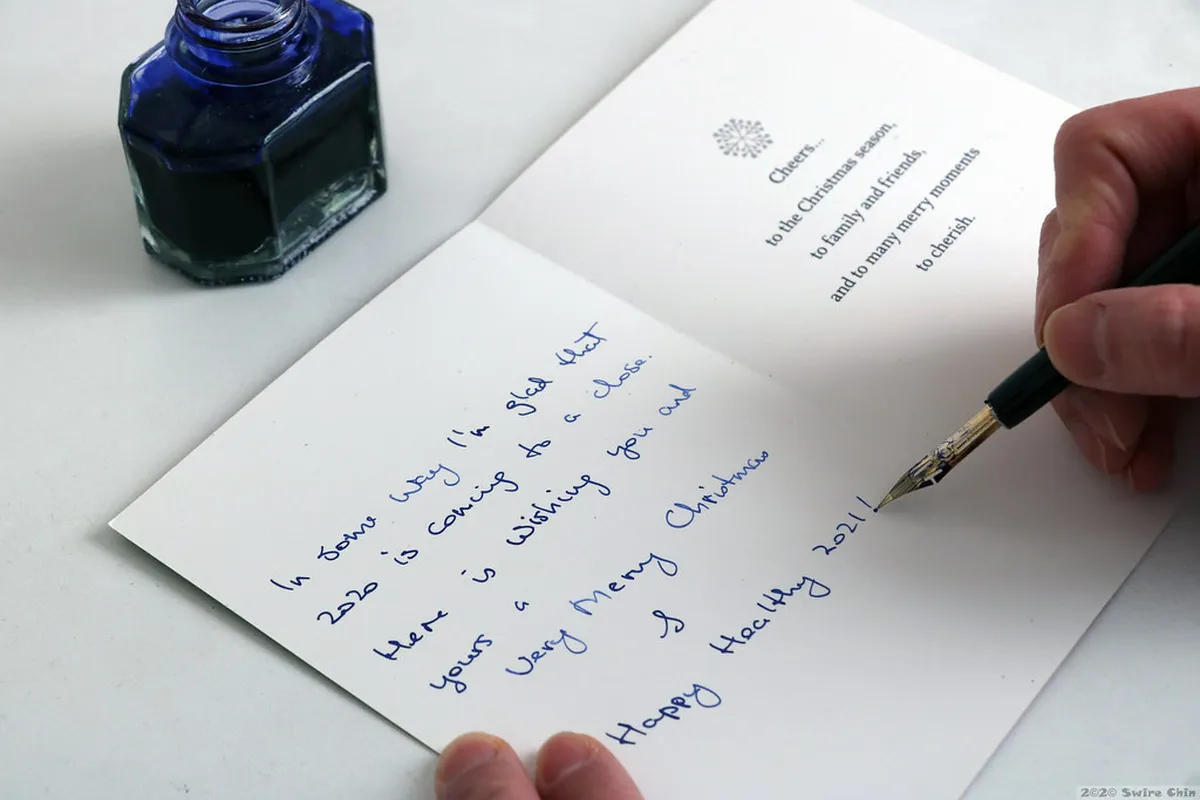 Cheers...
to the Christmas season,
to family and friends,
and to many merry moments
to cherish.
In some way I'm glad that
2020 is coming to a close.
Here is wishing you and
yours a
Very Merry Christmas
&
Happy Healthy 2021!
2020 Swire Chin